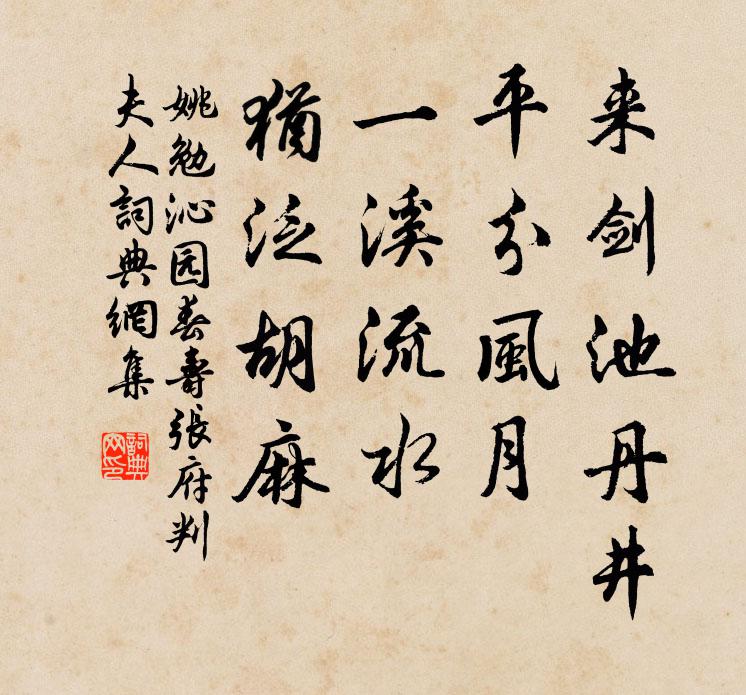 来剑池丹井
平分風月
一溪流水
猶泛胡麻
姚勉沁园春壽張府判
夫人詞典網集
詞典网印